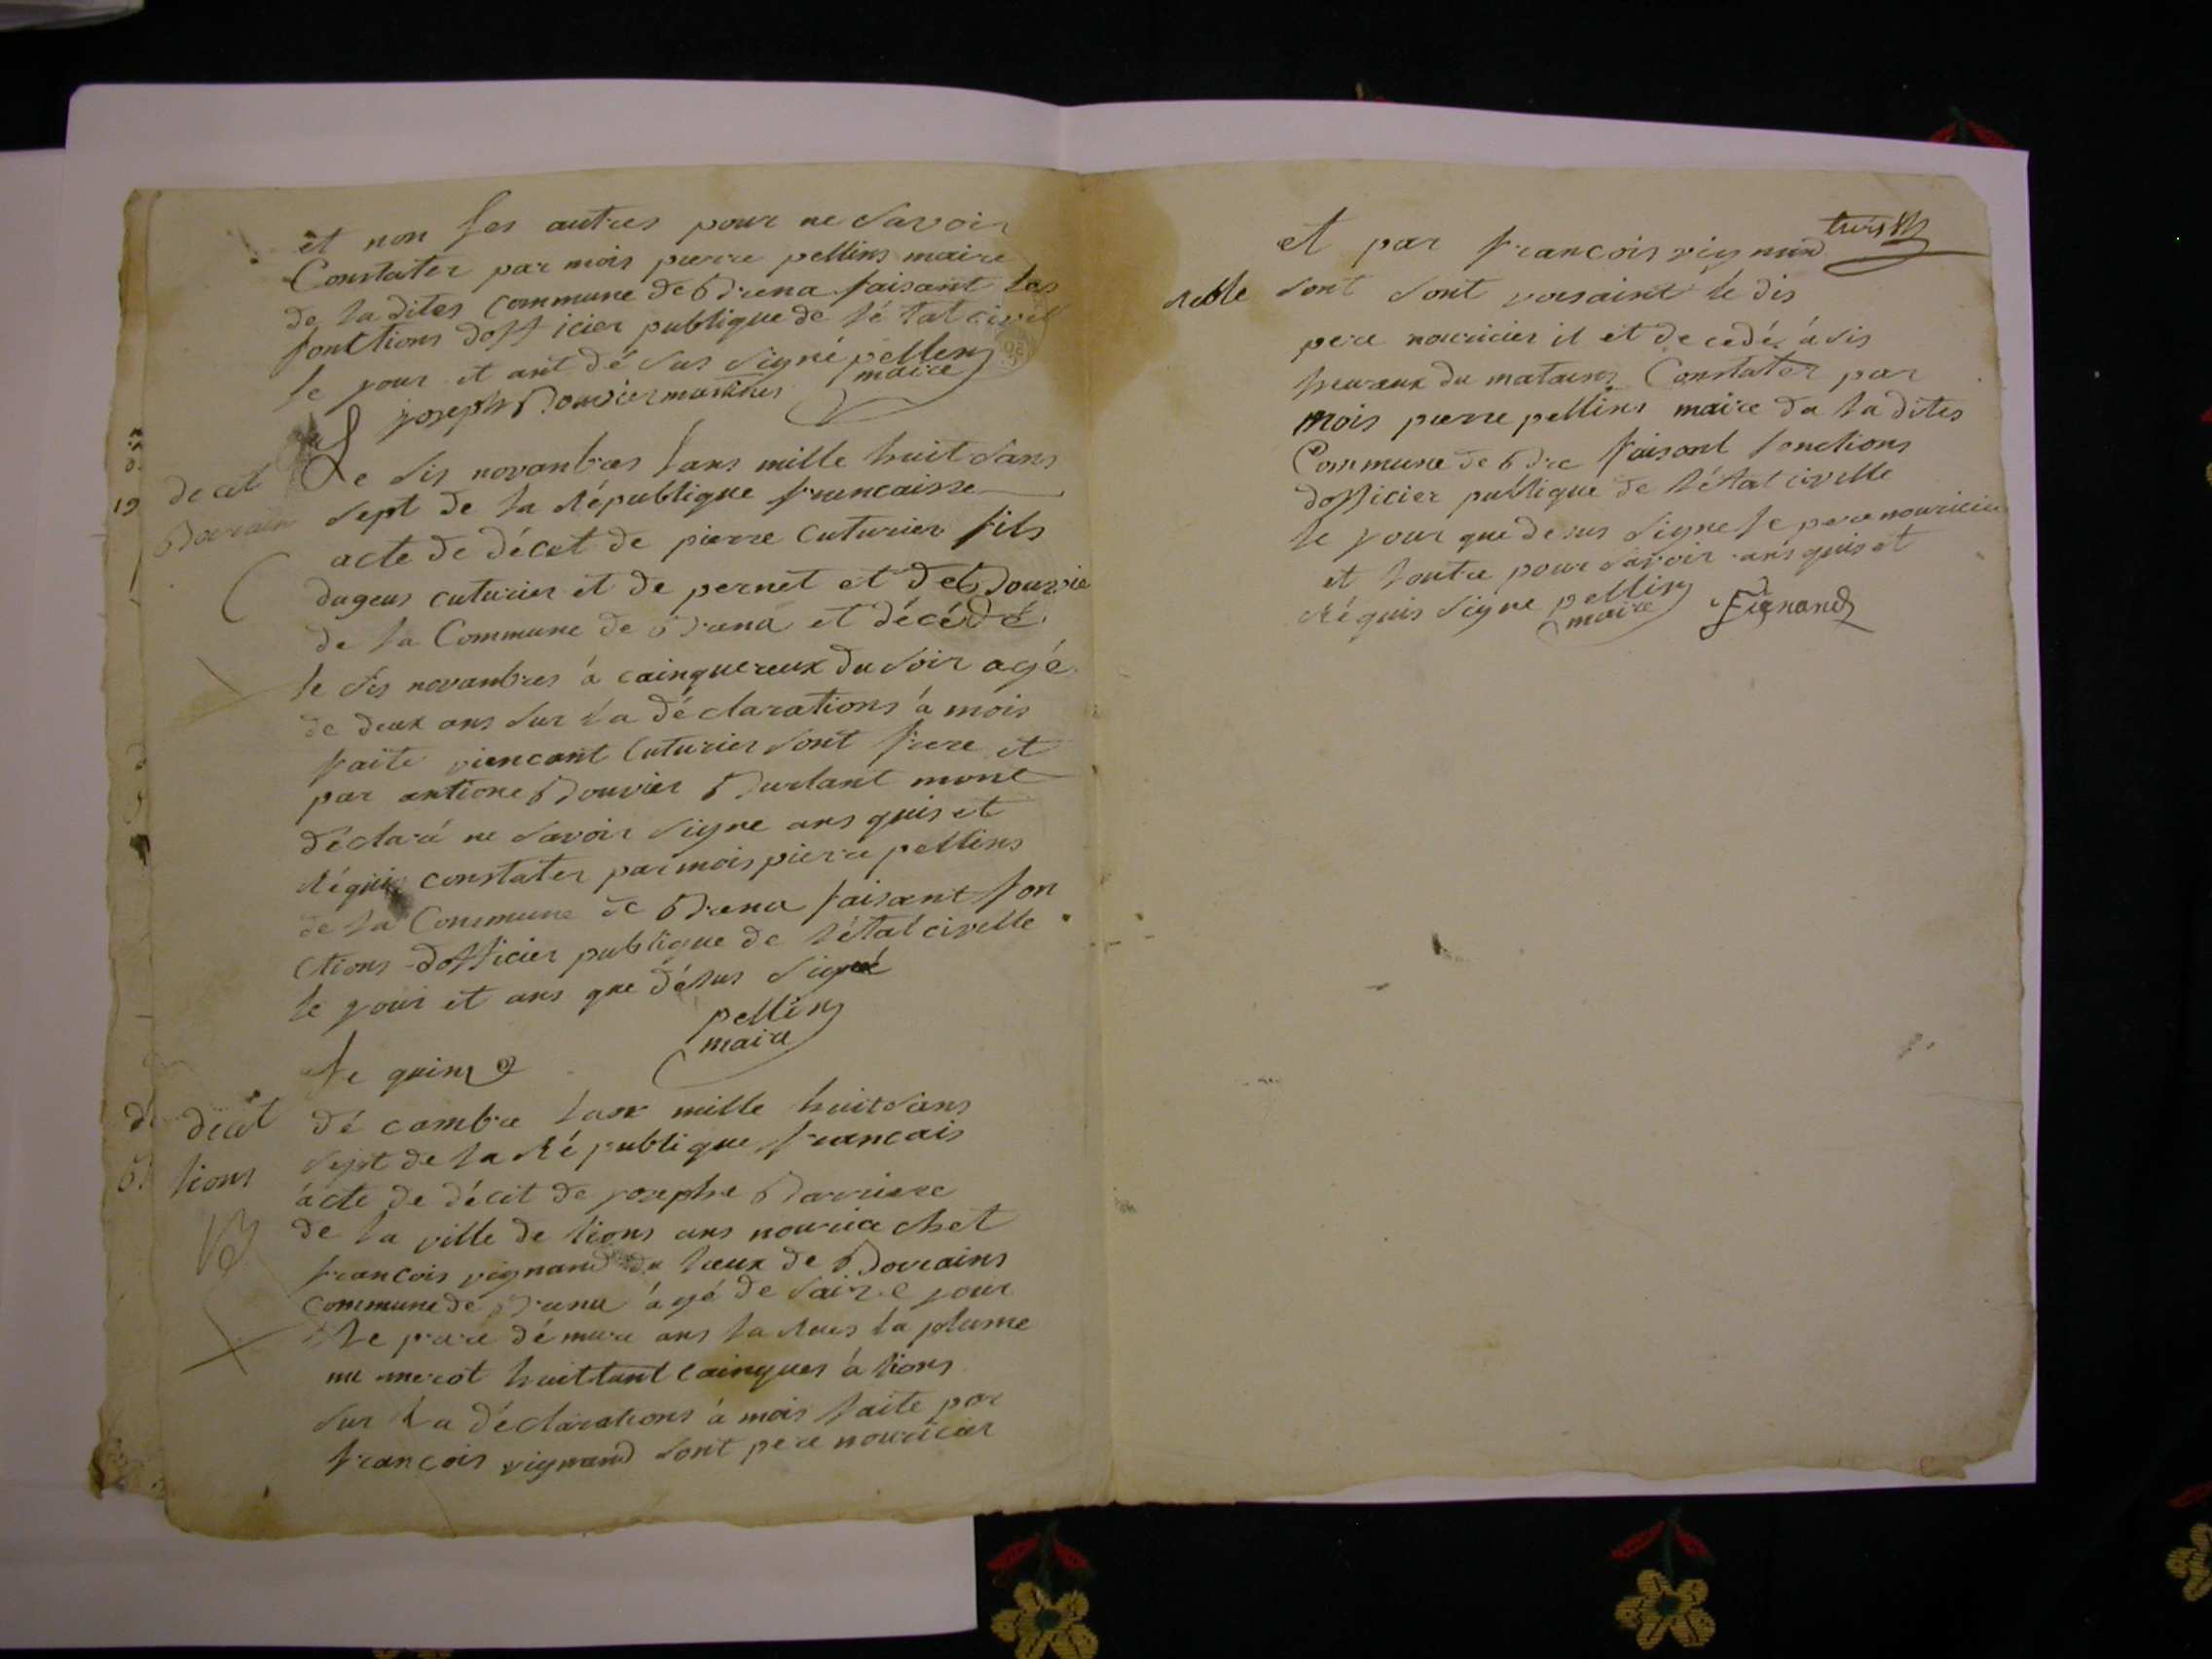 et non les autres pour ne savoir
Constater par mois pierre pellins maire
de la dites Commune de Brena faisant les
fonctions dofficier publique de lé tat civil
le jour et ant dé sus signé pellens
maire
joseph Bouvier
decet
Le sis novanbres lans mille huit sans
sept de la République francaisse
acte de décet de pierre Cuturier fils
dageus cuturier et de pernet et de Bouvie
de la Commune de Brena et décédé
le sis novanbres à cainquereux du soir agé
de deux ans sur la dé clarations à mois
faite viencant Cuturier sont frere et
par antione Bouvier Burlant mont
déclaré ne savoir signe ans quis et
Réquis constater par mois pierre pellins
de la Commune de Brena faisant fon
ctions dofficier publique de létat civelle
le jour et ans que désus signé
pellins
maire
Le quinz
decet
dé cambre lans mille huit sans
lions
sept de la Ré publique francais
acte de décet de josephe Barriere
de la ville de lions ans nourice chet
francois vignand du lieux de Bovains
Commune de Brena agé de saize jour
le pere démure ans la Rues la plume
nu merot huittant cainques à lions
sur la déclarations à mois faite par
francois vignand sont pere nouricier
et par francois vignand
sont sont voisaint le dis
pere nouricier il et de cedé à sis
heureux du matains Constater par
mois pierre pellins maire da la dites
Commune de Bre faisont fonctions
dofficier publique de létat civelle
le jour que de sus signe le pere nouricier
et loutre pour savoir ans quis et
Réquis signe pellins
maire
Vignand